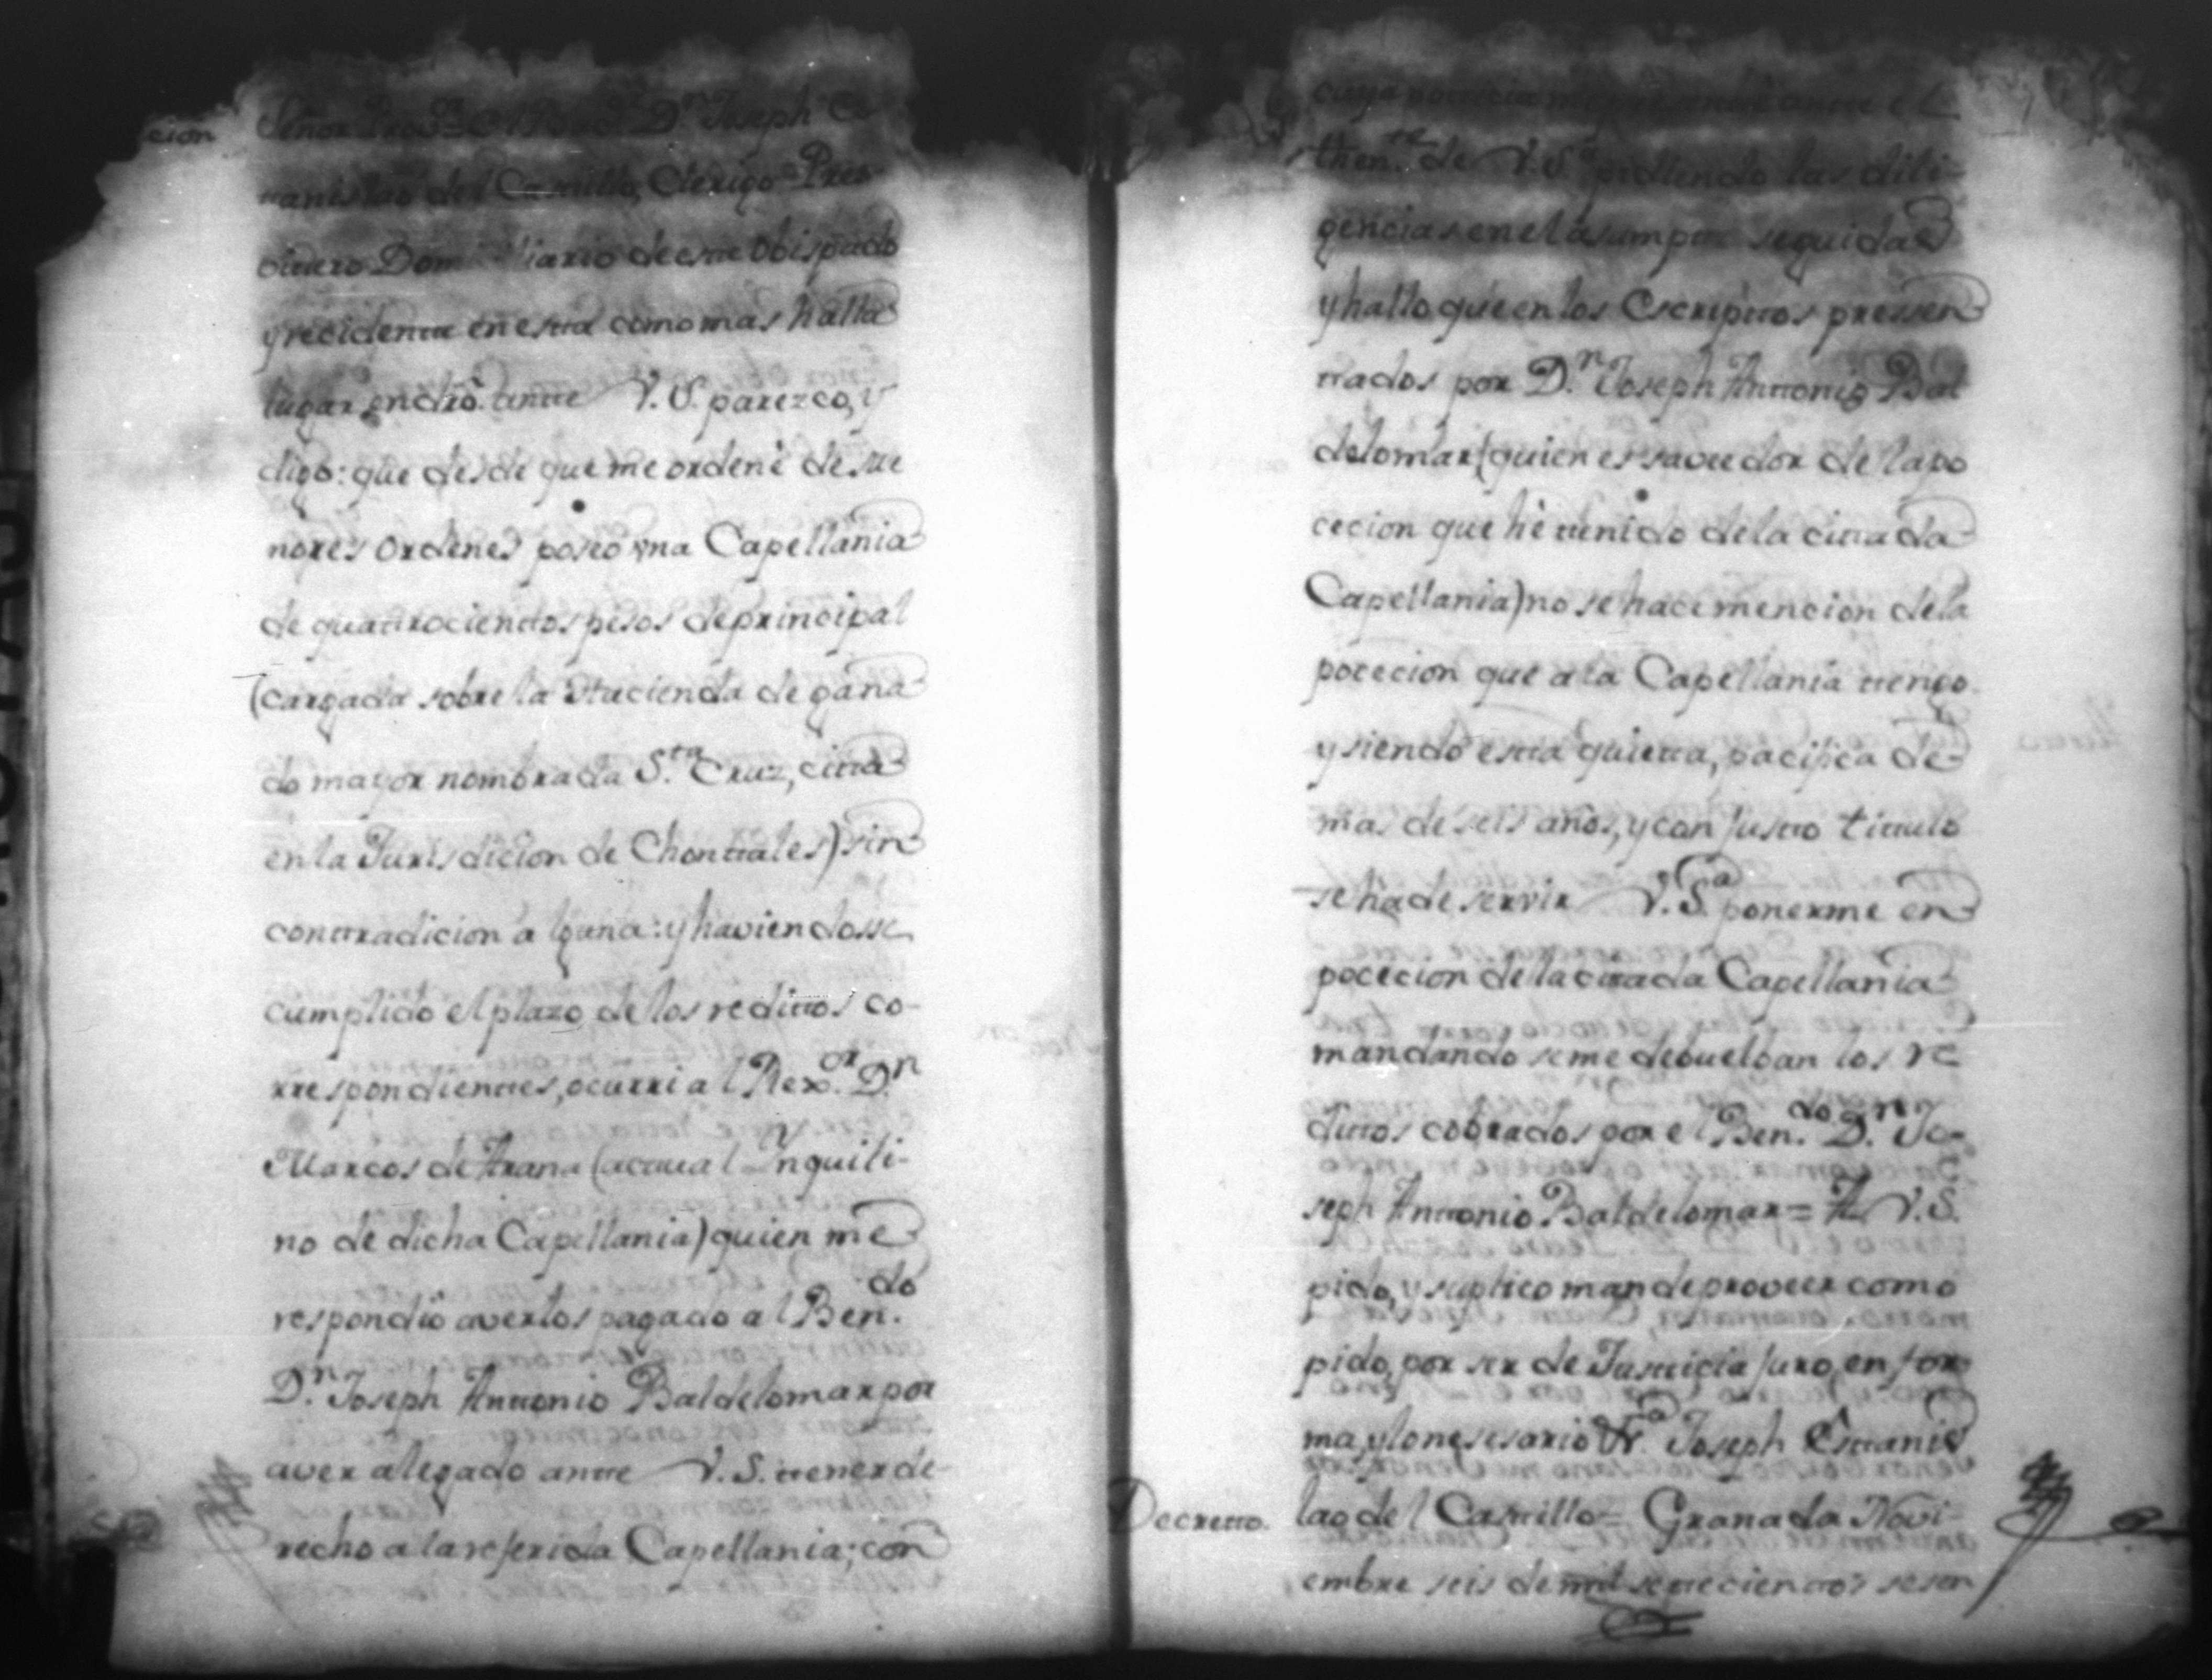 cion
Señor Prov.or El Ben.do D.n Joseph Es
tanislao del Castillo, Clerigo Pres-
vitero Domiciliario de este Obispado
y recidente en esta como mas halla
lugar en dro. ante V. S. parezco, y
digo: que desde que me ordenè de me
nores Ordenes poseo vna Capellania
de quattrocienttos pesos de principal
(cargada sobre la Hacienda de gana
do mayor nombrada S.ta Cruz, citta
en la Jurisdicion de Chonttales) sin
conttradicion alguna: y haviendosse
cumplido el plazo de los redittos co-
rrespondienttes, ocurri al Rex.or D.n
Marcos de Arana (acttual Ynquili-
no de dicha Capellania) quien me
respondiò averlos pagado al Ben.do
D.n Joseph Anttonio Baldelomar por
aver alegado antte V. S. ttener de-
recho a la referida Capellania; con
cuya notticia me presentè antte el
then.te de V. S.a pidiendo las dili-
gencias en el asumpto seguidas
y hallo que en los Escripttos pressen
ttados por D.n Joseph Anttonio Bal
delomar (quien es savedor de la po
cecion que hè ttenido de la cittada
Capellania) no se hace mencion de la
pocecion que a la Capellania ttengo.
y siendo estta quietta, pacifica de
mas de seis años, y con justto tittulo
se ha de servir V. S.a ponerme en
pocecion de la cittada Capellania
mandando se me debuelban los re
dittos cobrados por el Ben.do D.n Jo-
seph Anttonio Baldelomar = A V. S.
pido, y suplico mande proveer como
pido, por ser de Justticia juro, en for
ma, y lo nesesario &.a Joseph Esttanis
lao del Casttillo = Granada Novi-
Decretto.
embre seis de mil settecienttos sesen